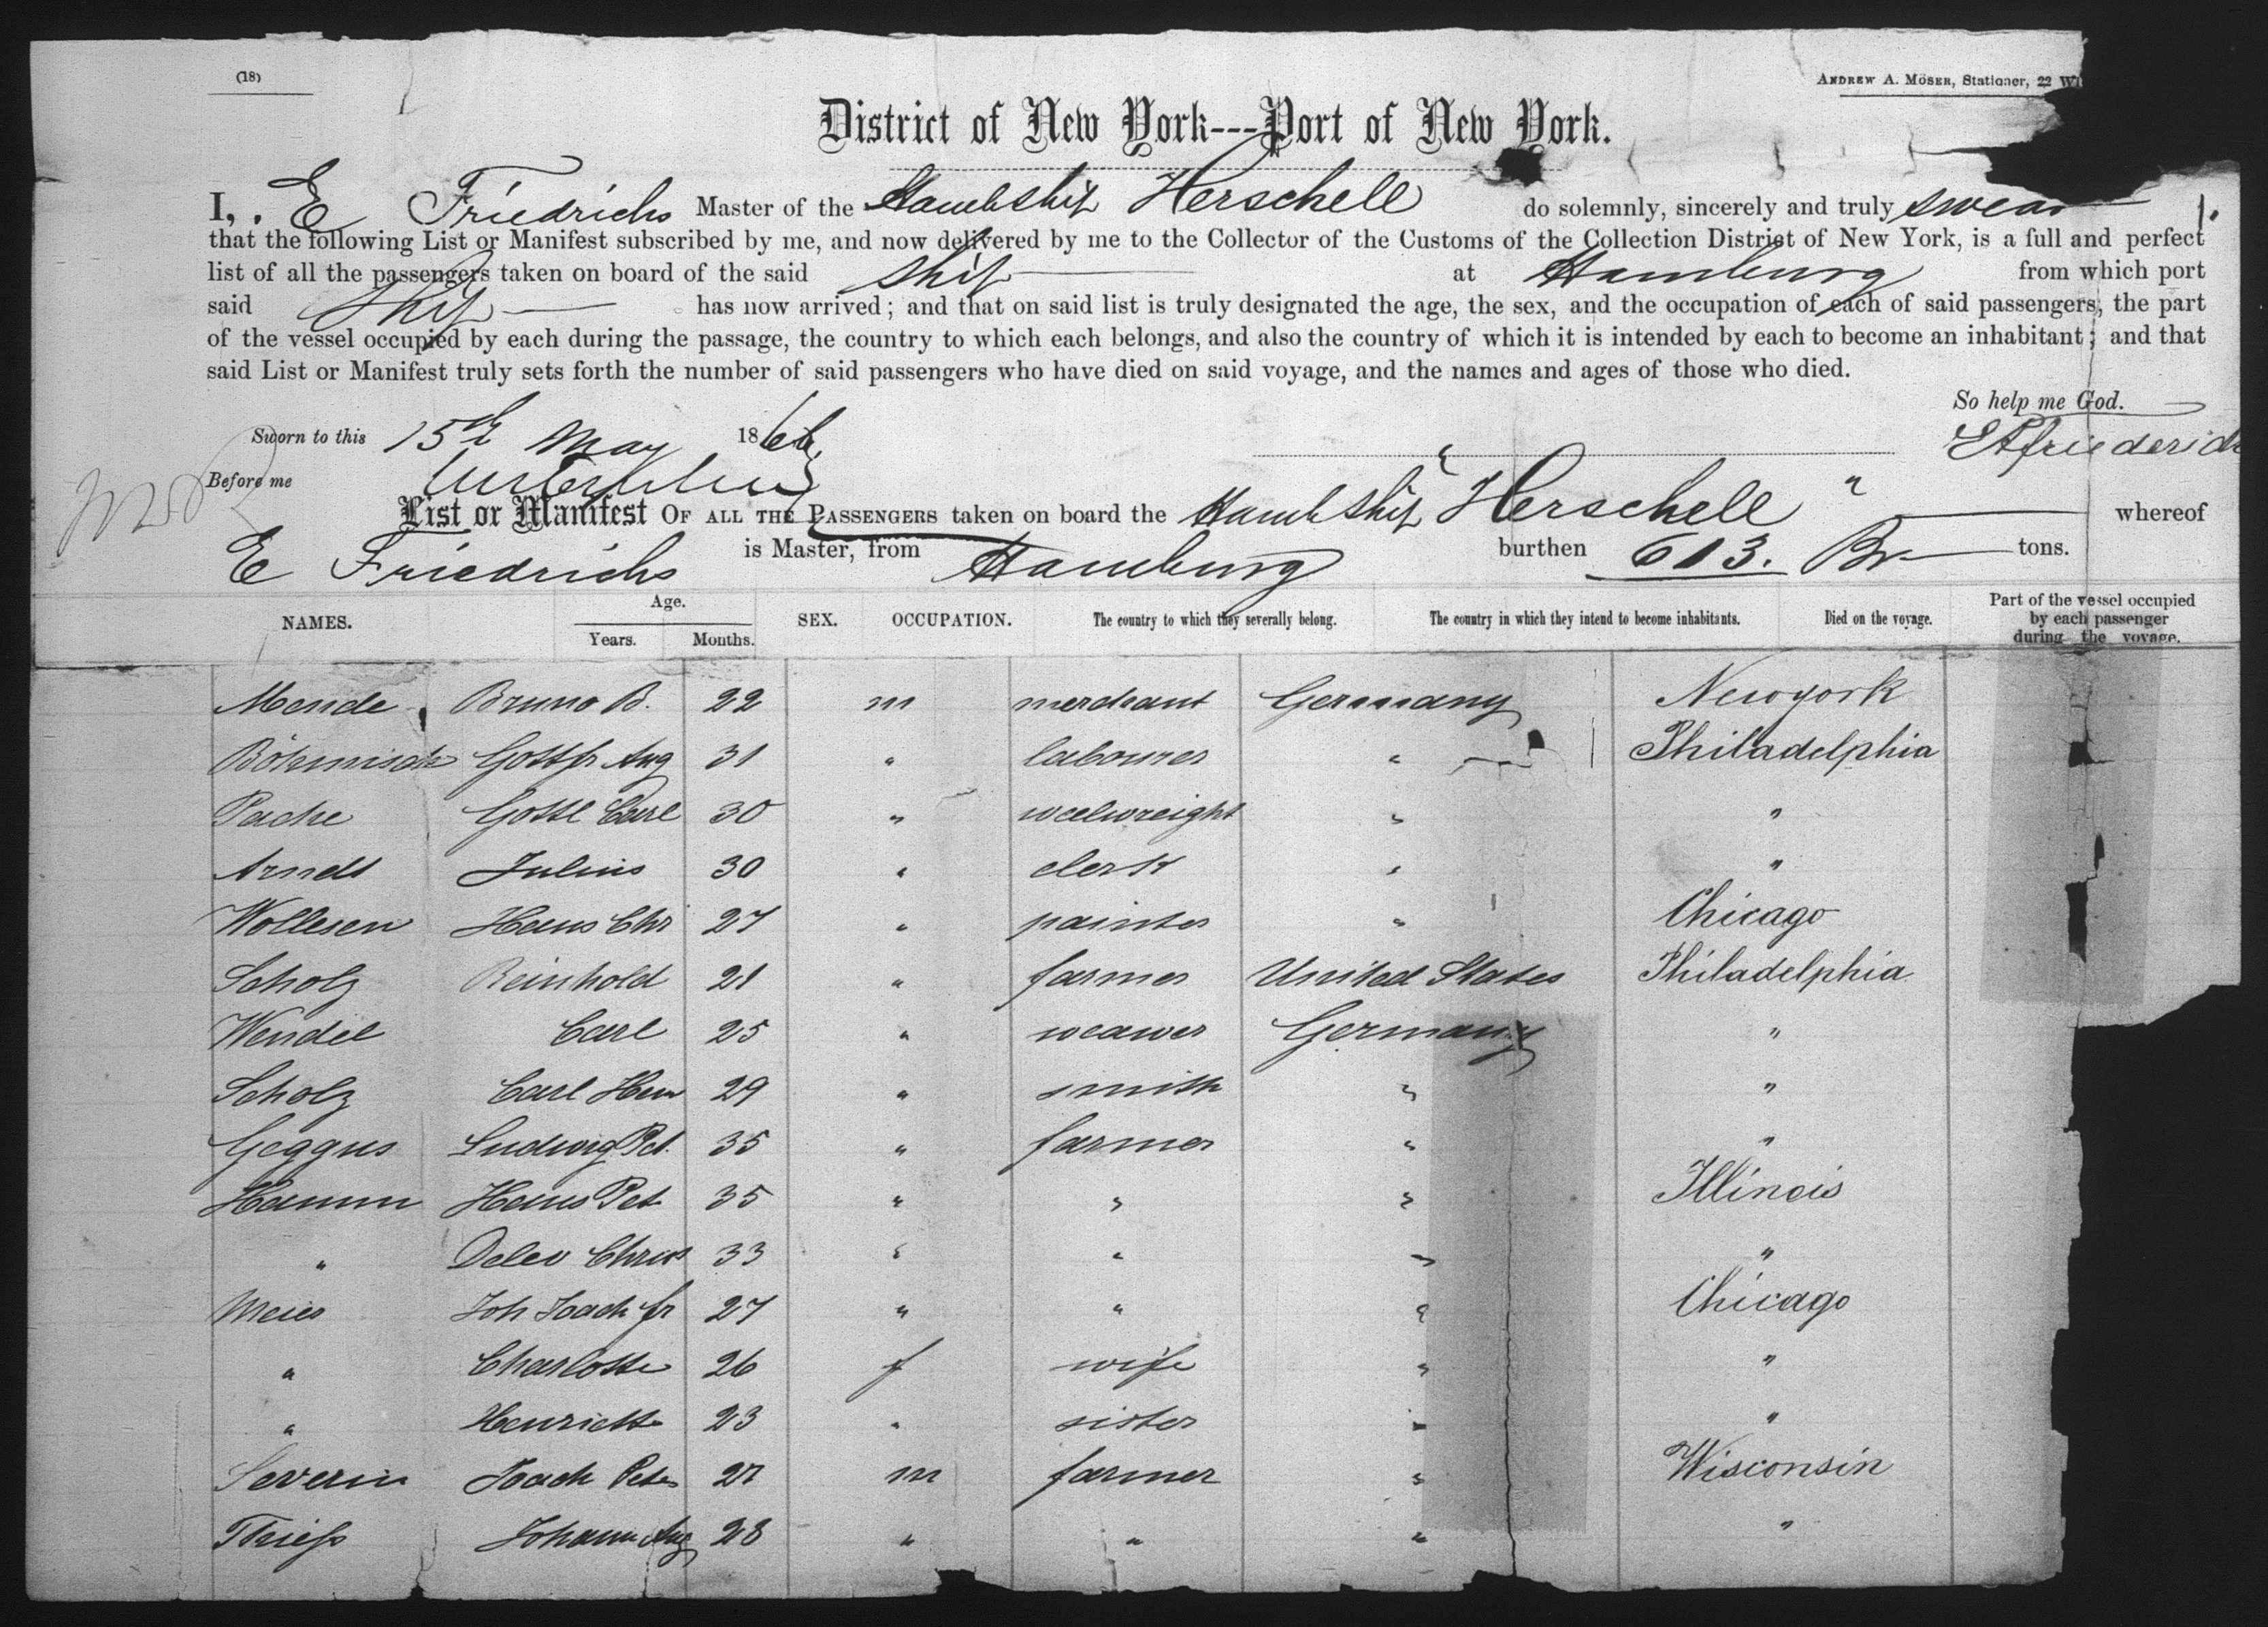 (18)
ANDREW A. MÖSER, Stationer, 22
District of New York---Port of New York.
I, E Friedrichs Master of the Hamb Ship Herschell do solemnly, sincerely and truly swear 1.
that the following List or Manifest subscribed by me, and now delivered by me to the Collector of the Customs of the Collection District of New York, is a full and perfect
list of all the passengers taken on board of the said ship at Hamburg from which port
said ship has now arrived; and that on said list is truly designated the age, the sex, and the occupation of each of said passengers, the part
of the vessel occupied by each during the passage, the country to which each belongs, and also the country of which it is intended by each to become an inhabitant; and that
said List or Manifest truly sets forth the number of said passengers who have died on said voyage, and the names and ages of those who died.
So help me God.
Sworn to this 15th May 1866
Before me
List or Manifest OF ALL THE PASSENGERS taken on board the Hamb Ship "Herschell" whereof
E Friedrichs is Master, from Hamburg burthen 613. Br tons.
NAMES. Age. Years. Months. SEX. OCCUPATION. The country to which they severally belong. The country in which they intend to become inhabitants. Died on the voyage. Part of the vessel occupied by each passenger during the voyage.
Mende Bruno B. 22 m merchant Germany Newyork
Böhmisch Gottfr Aug 31 " labourer " Philadelphia
Pache Gottl Carl 30 " weelwreight " "
Arndt Julius 30 " clerk " "
Wollesen Hans Chr 27 " painter " Chicago
Scholz Reinhold 21 " farmer United States Philadelphia
Wendel Carl 25 " weawer Germany "
Scholz Carl Hen 29 " smith " "
Geggus Ludwig Pet. 35 " farmer " "
Hamm Hans Pet 35 " " " Illinois
" Delev Chris 33 " " " "
Meier Joh Joach fr 27 " " " Chicago
" Charlotte 26 f wife " "
" Henriette 23 " sister " "
Severin Joach Peter 27 m farmer " Wisconsin
Thieß Johann Aug 28 " " " "